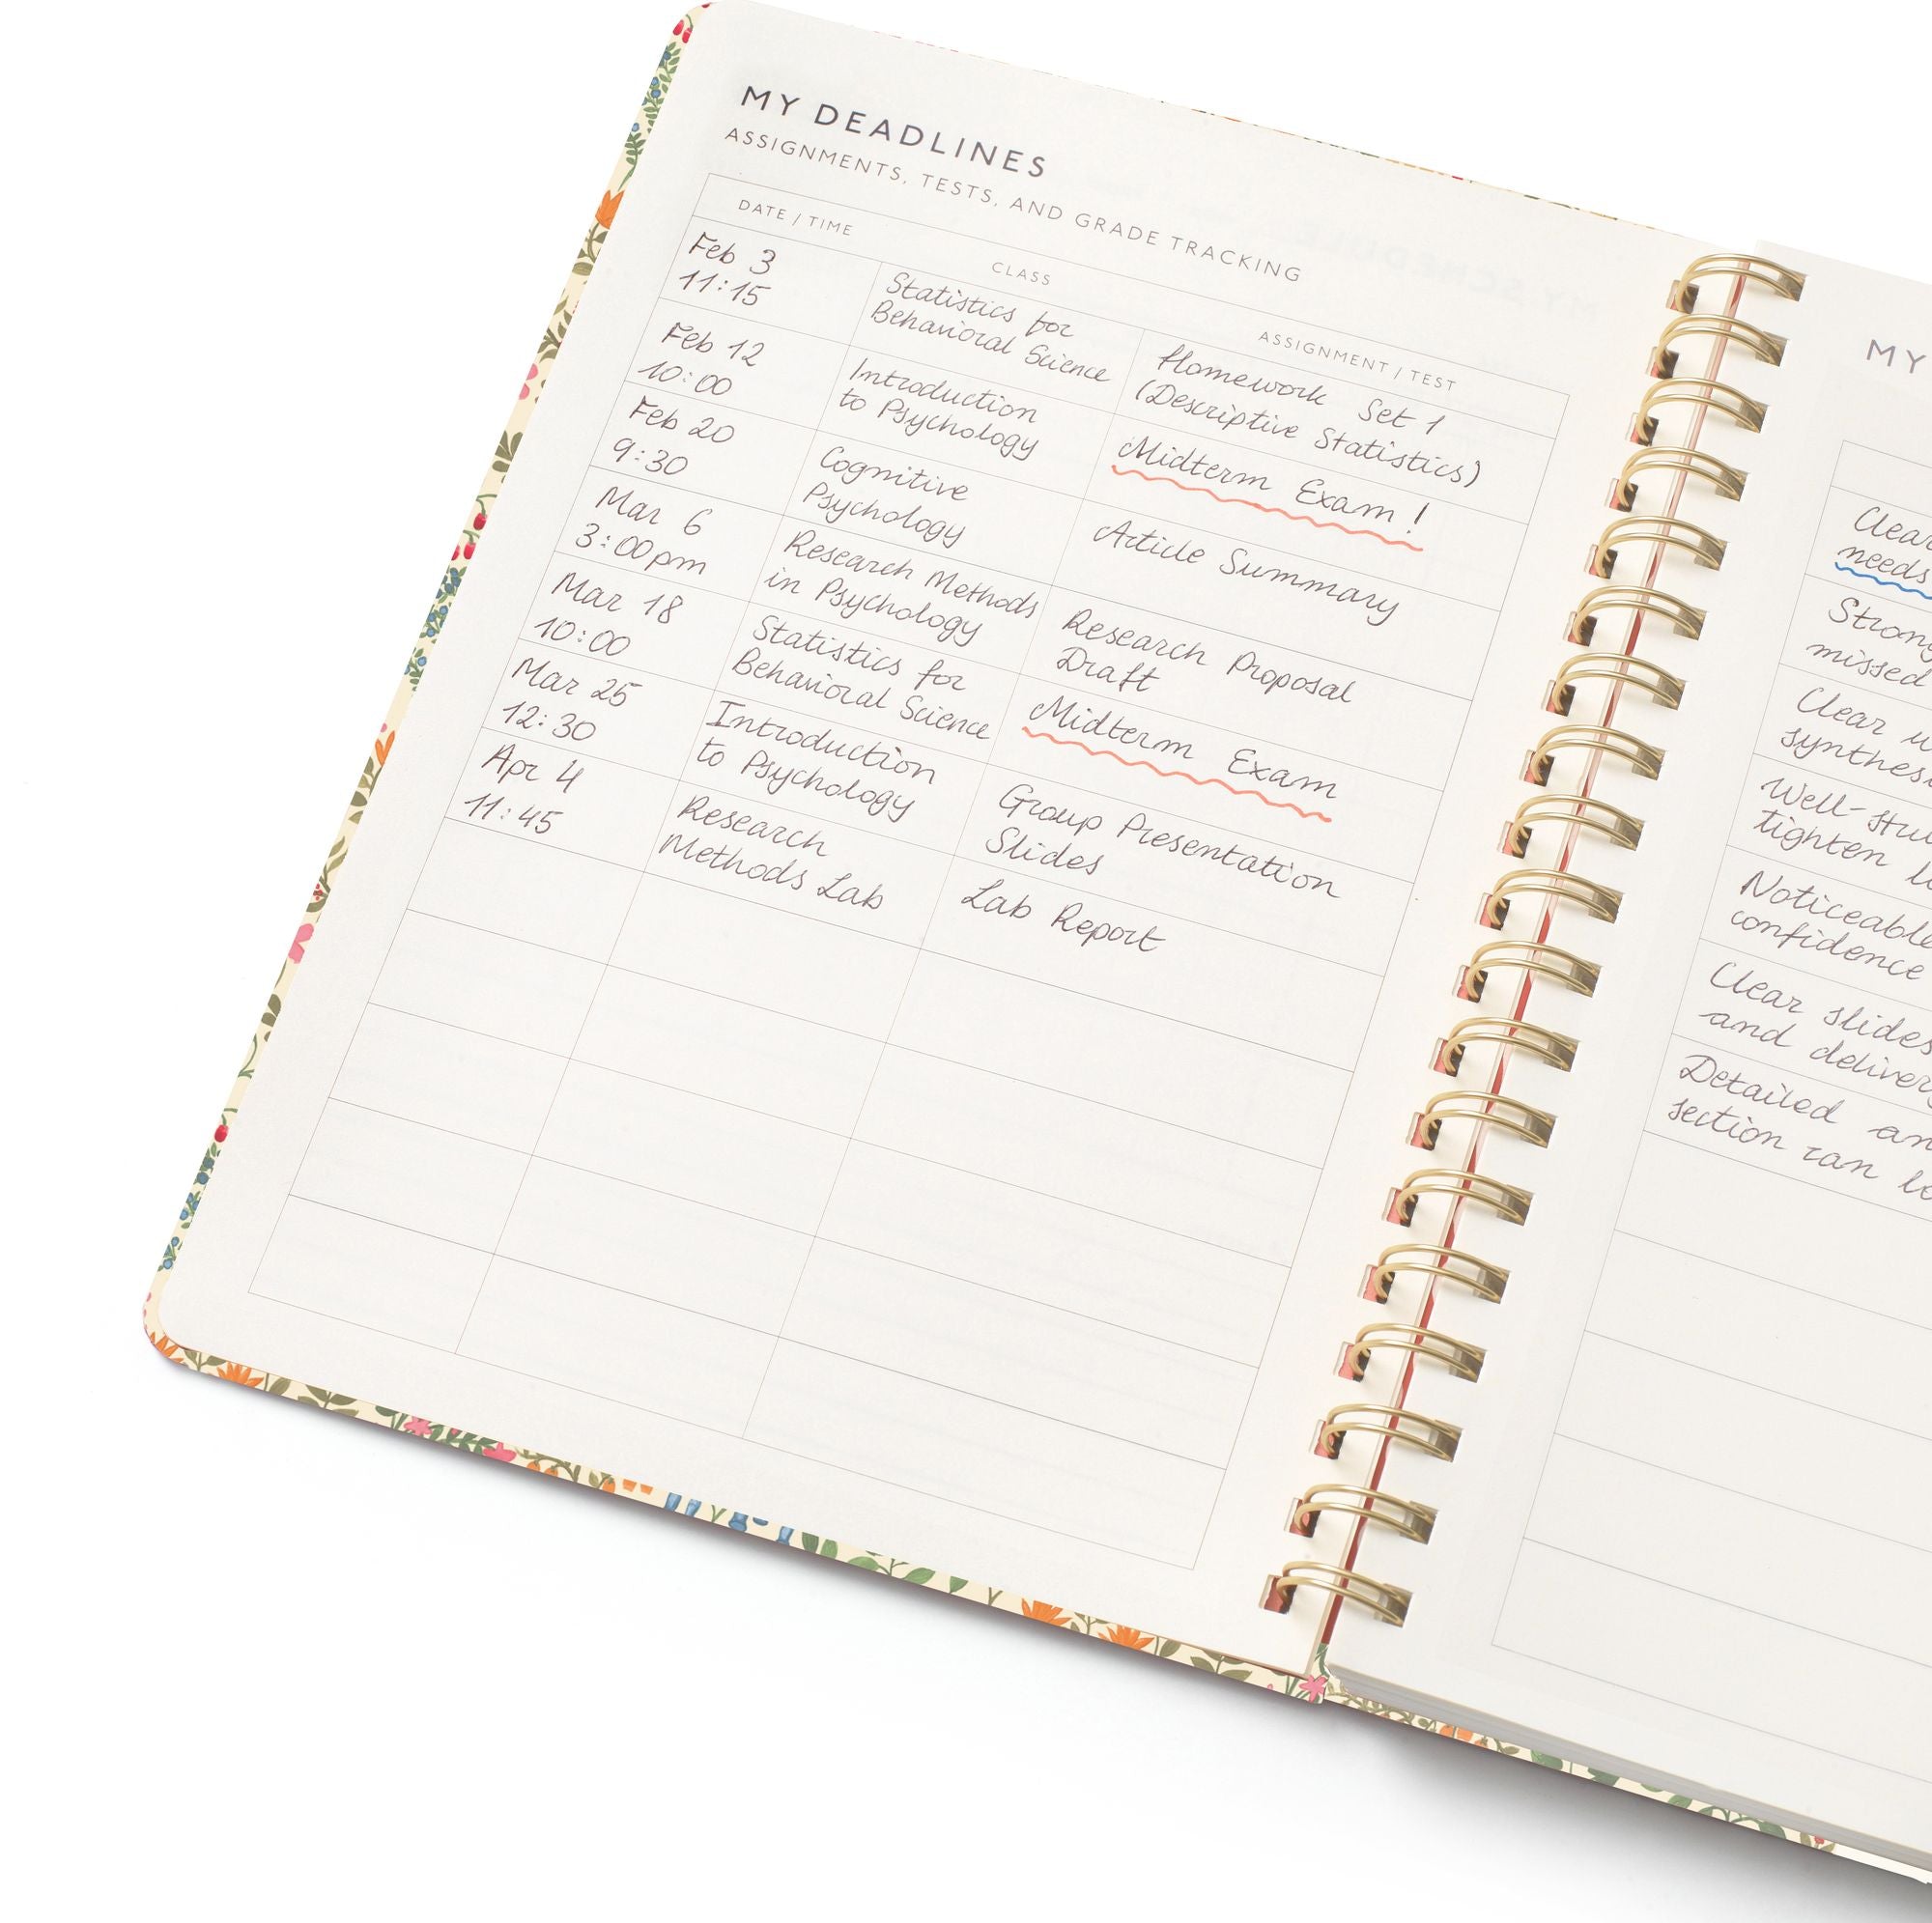 MY DEADLINES
ASSIGNMENTS, TESTS, AND GRADE TRACKING
DATE / TIME
CLASS
ASSIGNMENT / TEST
Feb 3
11:15
Statistics for
Behavioral Science
Homework Set 1
(Descriptive Statistics)
Feb 12
10:00
Introduction
to Psychology
Midterm Exam!
Feb 20
9:30
Cognitive
Psychology
Article Summary
Mar 6
3:00pm
Research Methods
in Psychology
Research Proposal
Draft
Mar 18
10:00
Statistics for
Behavioral Science
Midterm Exam
Mar 25
12:30
Introduction
to Psychology
Group Presentation
Slides
Apr 4
11:45
Research
Methods Lab
Lab Report
MY
Clear
needs
Strong
missed
Clear
Well-
tighten
Noticeable
confidence
Clear slides
and
Detailed
section can